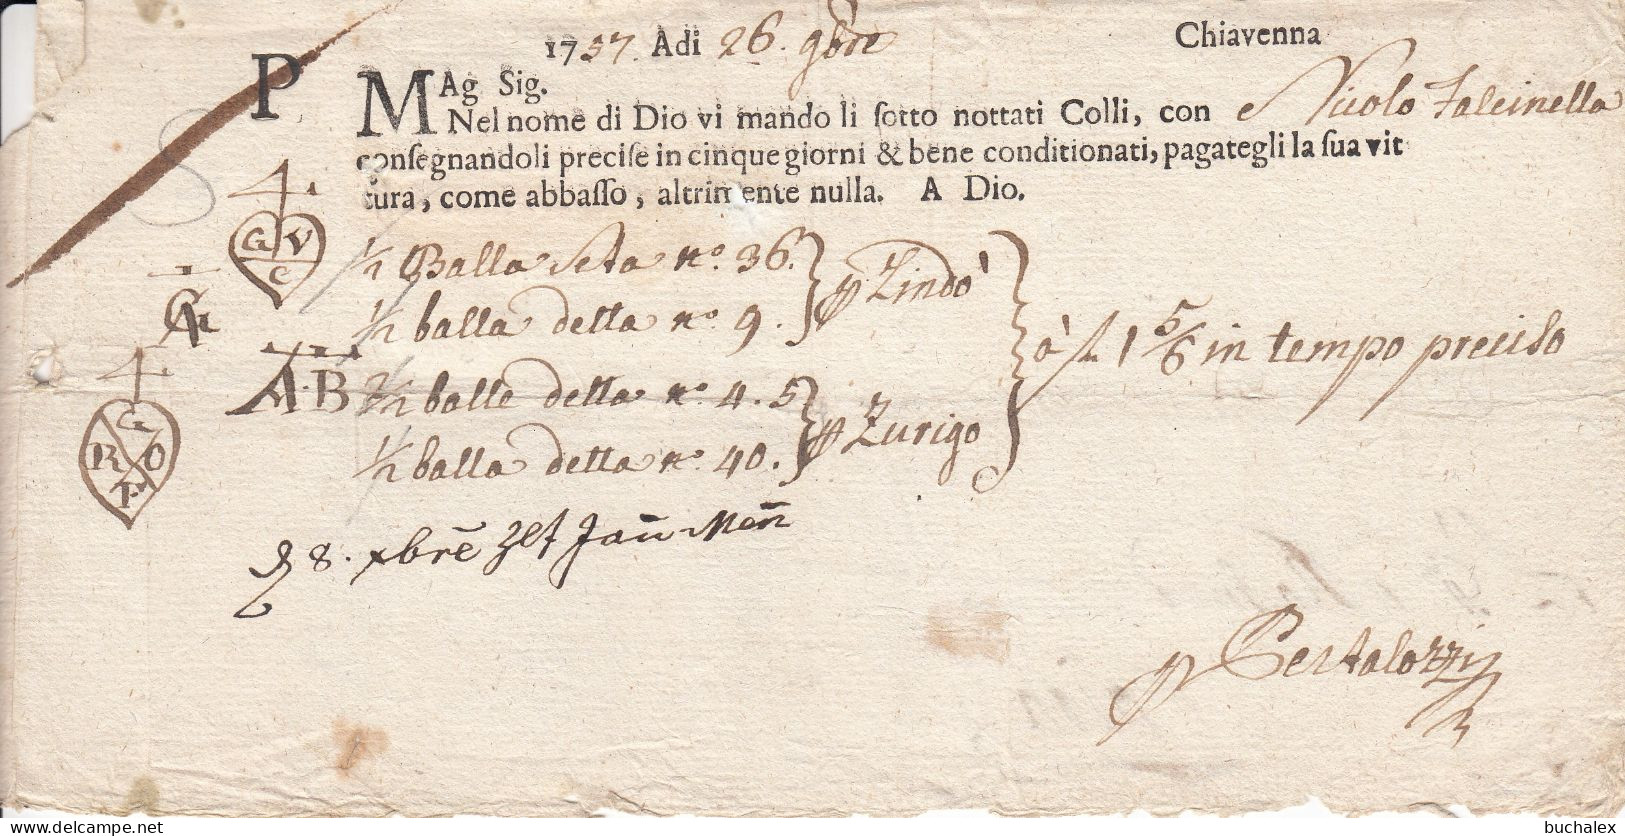 1757. Adi 26. 9bre Chiavenna
P
MAg Sig.
Nel nome di Dio vi mando li sotto nottati Colli, con Nicolo Falcinella
consegnandoli precise in cinque giorni & bene conditionati, pagategli la sua vit
tura, come abbasso, altrimente nulla. A Dio.
4
G V C
1/2 Balla Seta no. 36.
1/2 balla detta no 9. p Lindò
à f 1 5/6 in tempo preciso
A·B 2/2 balle detta no. 4. 5
1/2 balla detta no 40. p Zurigo
4
G R O F
8. xbrê
p Pestalozzi
buchalex